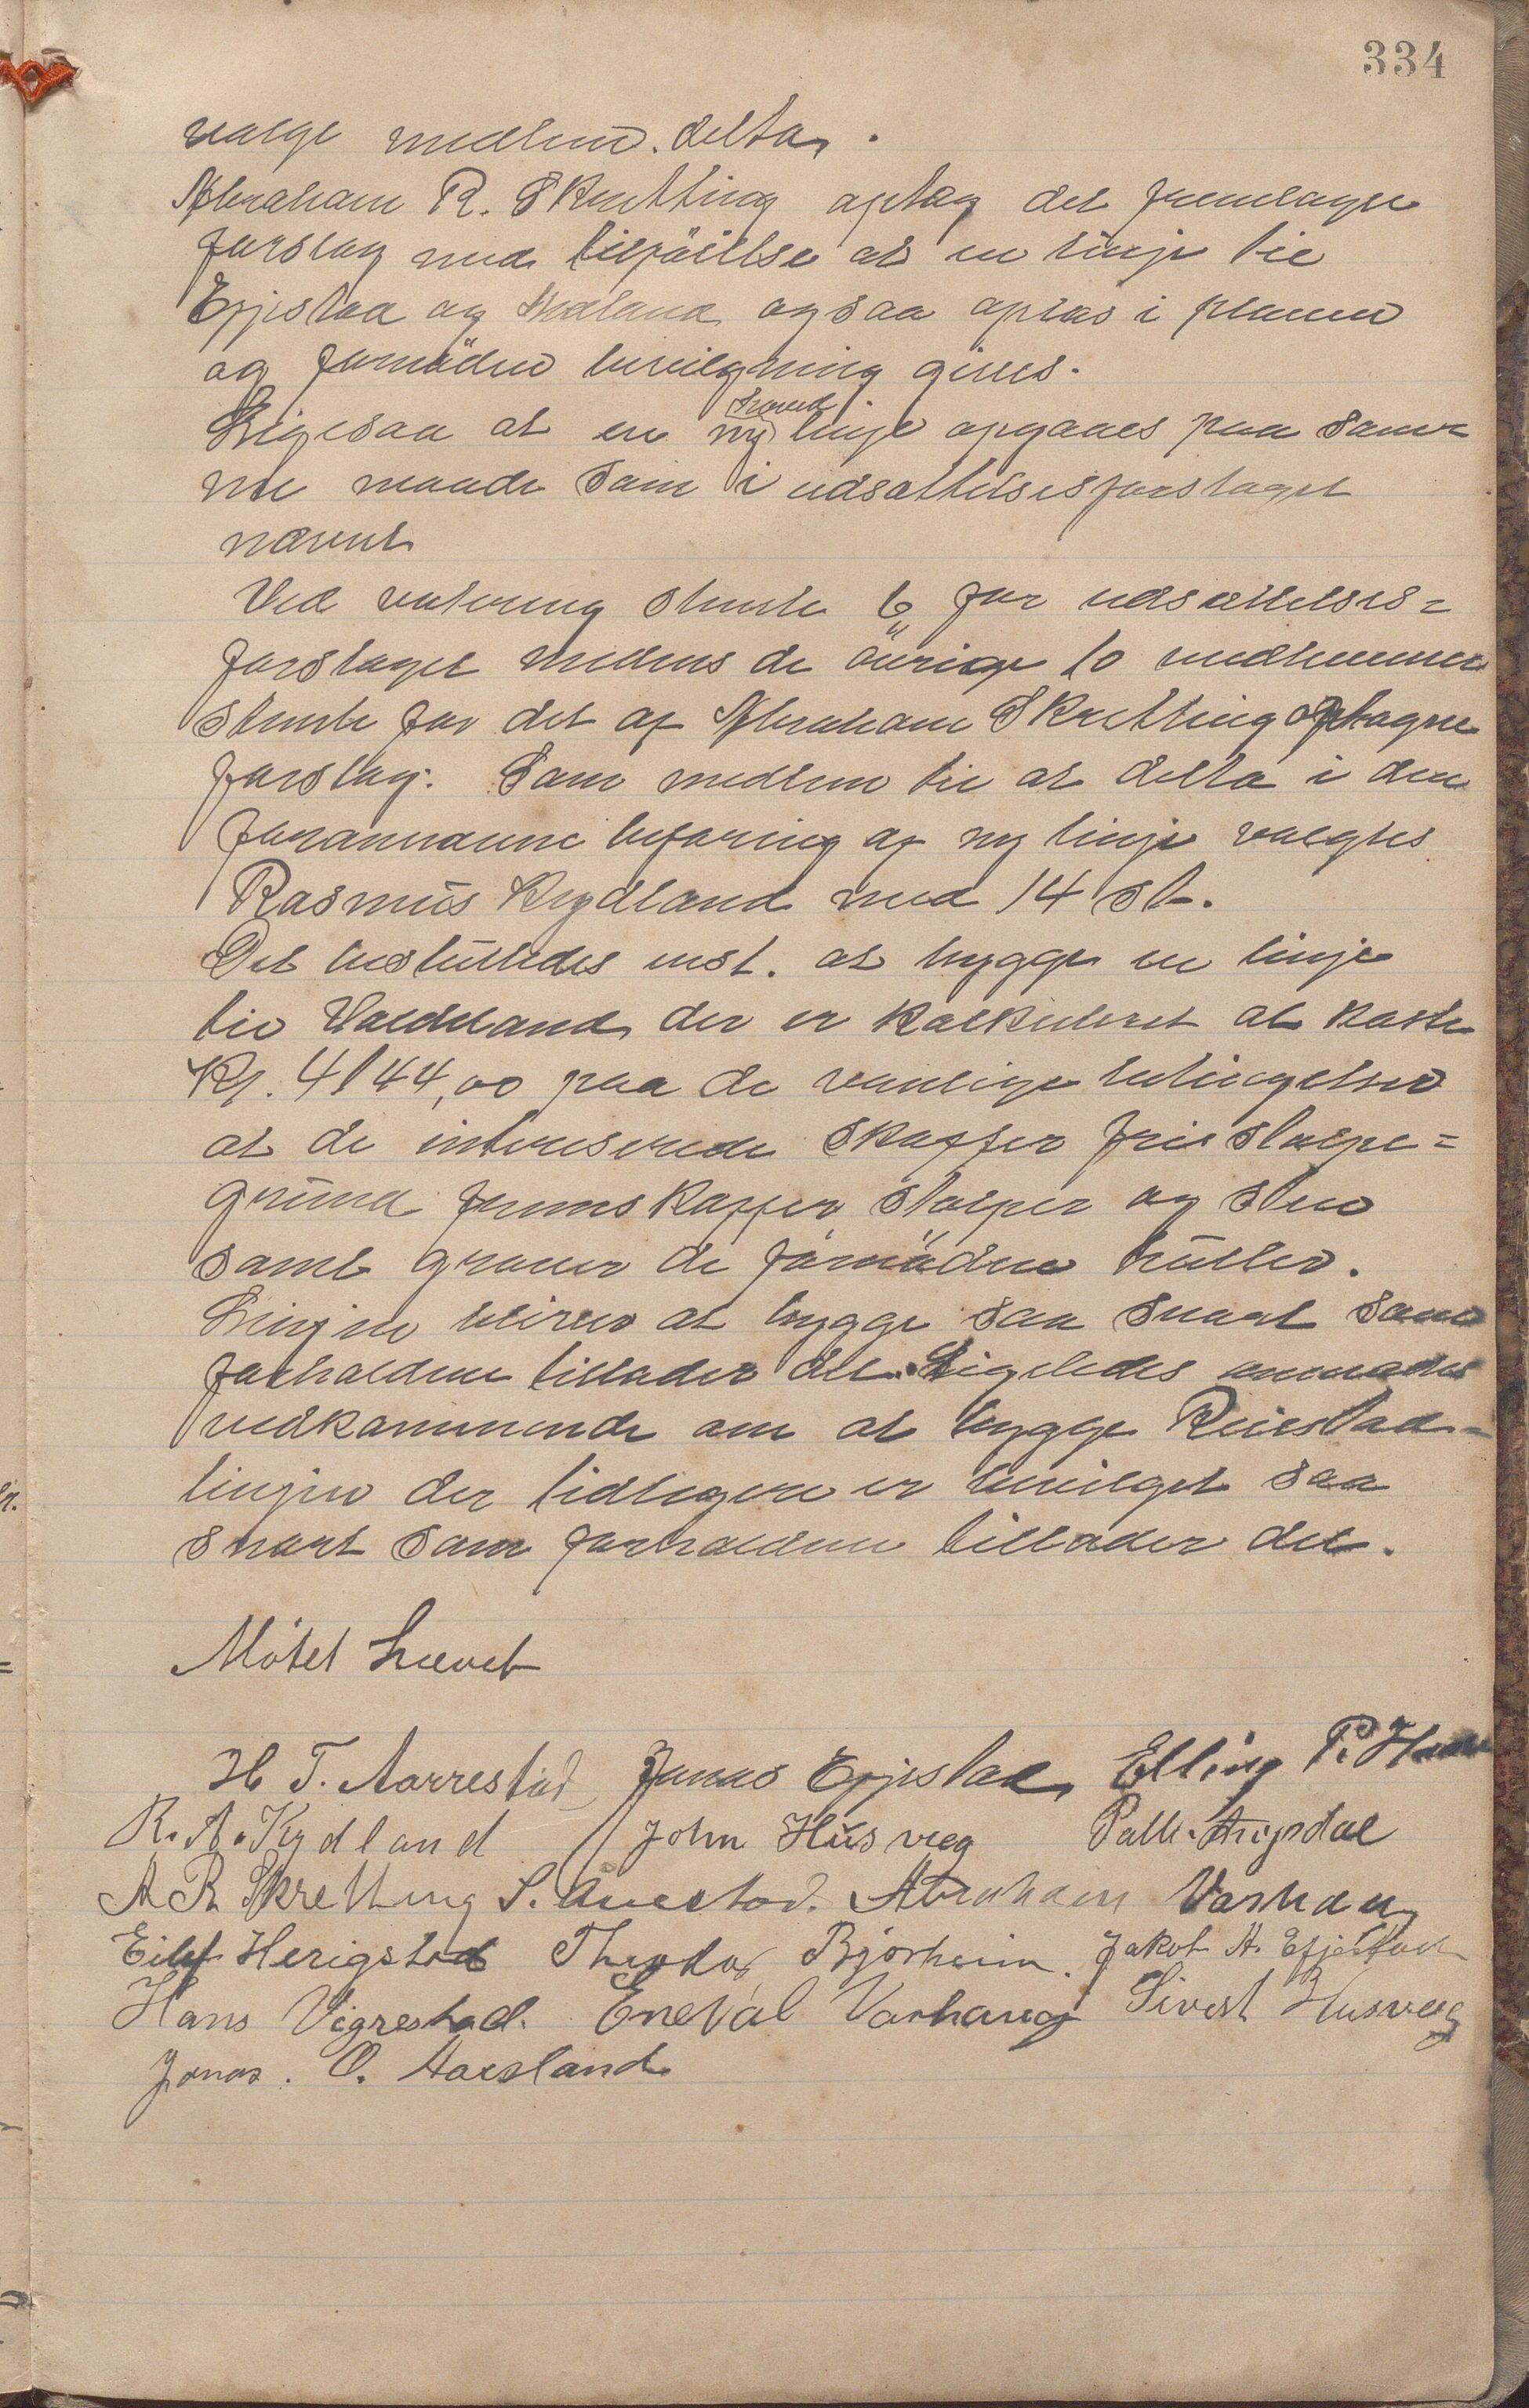 334
valge medlem. delta.
Abraham R. Skretting optog det fremlagte
forslag med tilföielse at en linje til
Epjestad og Indland ogsaa optas i planen
og fornöden bevilgning gives.
Ligesaa at en ny hoved linje opgaaes paa sam-
me maade som i udsættelsesforslaget
nævnt
Ved votering stemte 6 for udsættelses=
forslaget medens de övrige 10 medlemmer
stemte for det af Abraham Skretting optagne
forslag. Som medlem til at delta i den
forannævnte befaring af ny linje valgtes
Rasmus Kydland med 14 st.
Det besluttedes enst. at bygge en linje
til Vaddeland der er kalkuleret at koste
Kr. 4144,00 paa de vanlige betingelser
at de interesserede skaffer frie stolpe=
grund fremskaffer stolper og sten
samt graver de fornödne huller.
Linjen bliver at bygge saa snart som
forholdene tillader det. Ligeledes anmodes
vedkommende om at bygge Reiestad-
linjen der tidligere er bevilget saa
snart som forholdene tillader det.
Mötet hævet
H T. Aarrestad Jonas Epjestad Elling P.
R. A. Kydland John Husveg Palle Árrsdal
A R Skretting S. Auestad. Abraham Varhaug
Eilef Herigstad Theodor Bjorheim. Jakob A. Efjestad
Hans Vigrestad. Enevál Varhaug Sivert Husveg
Jonas. O. Aarsland